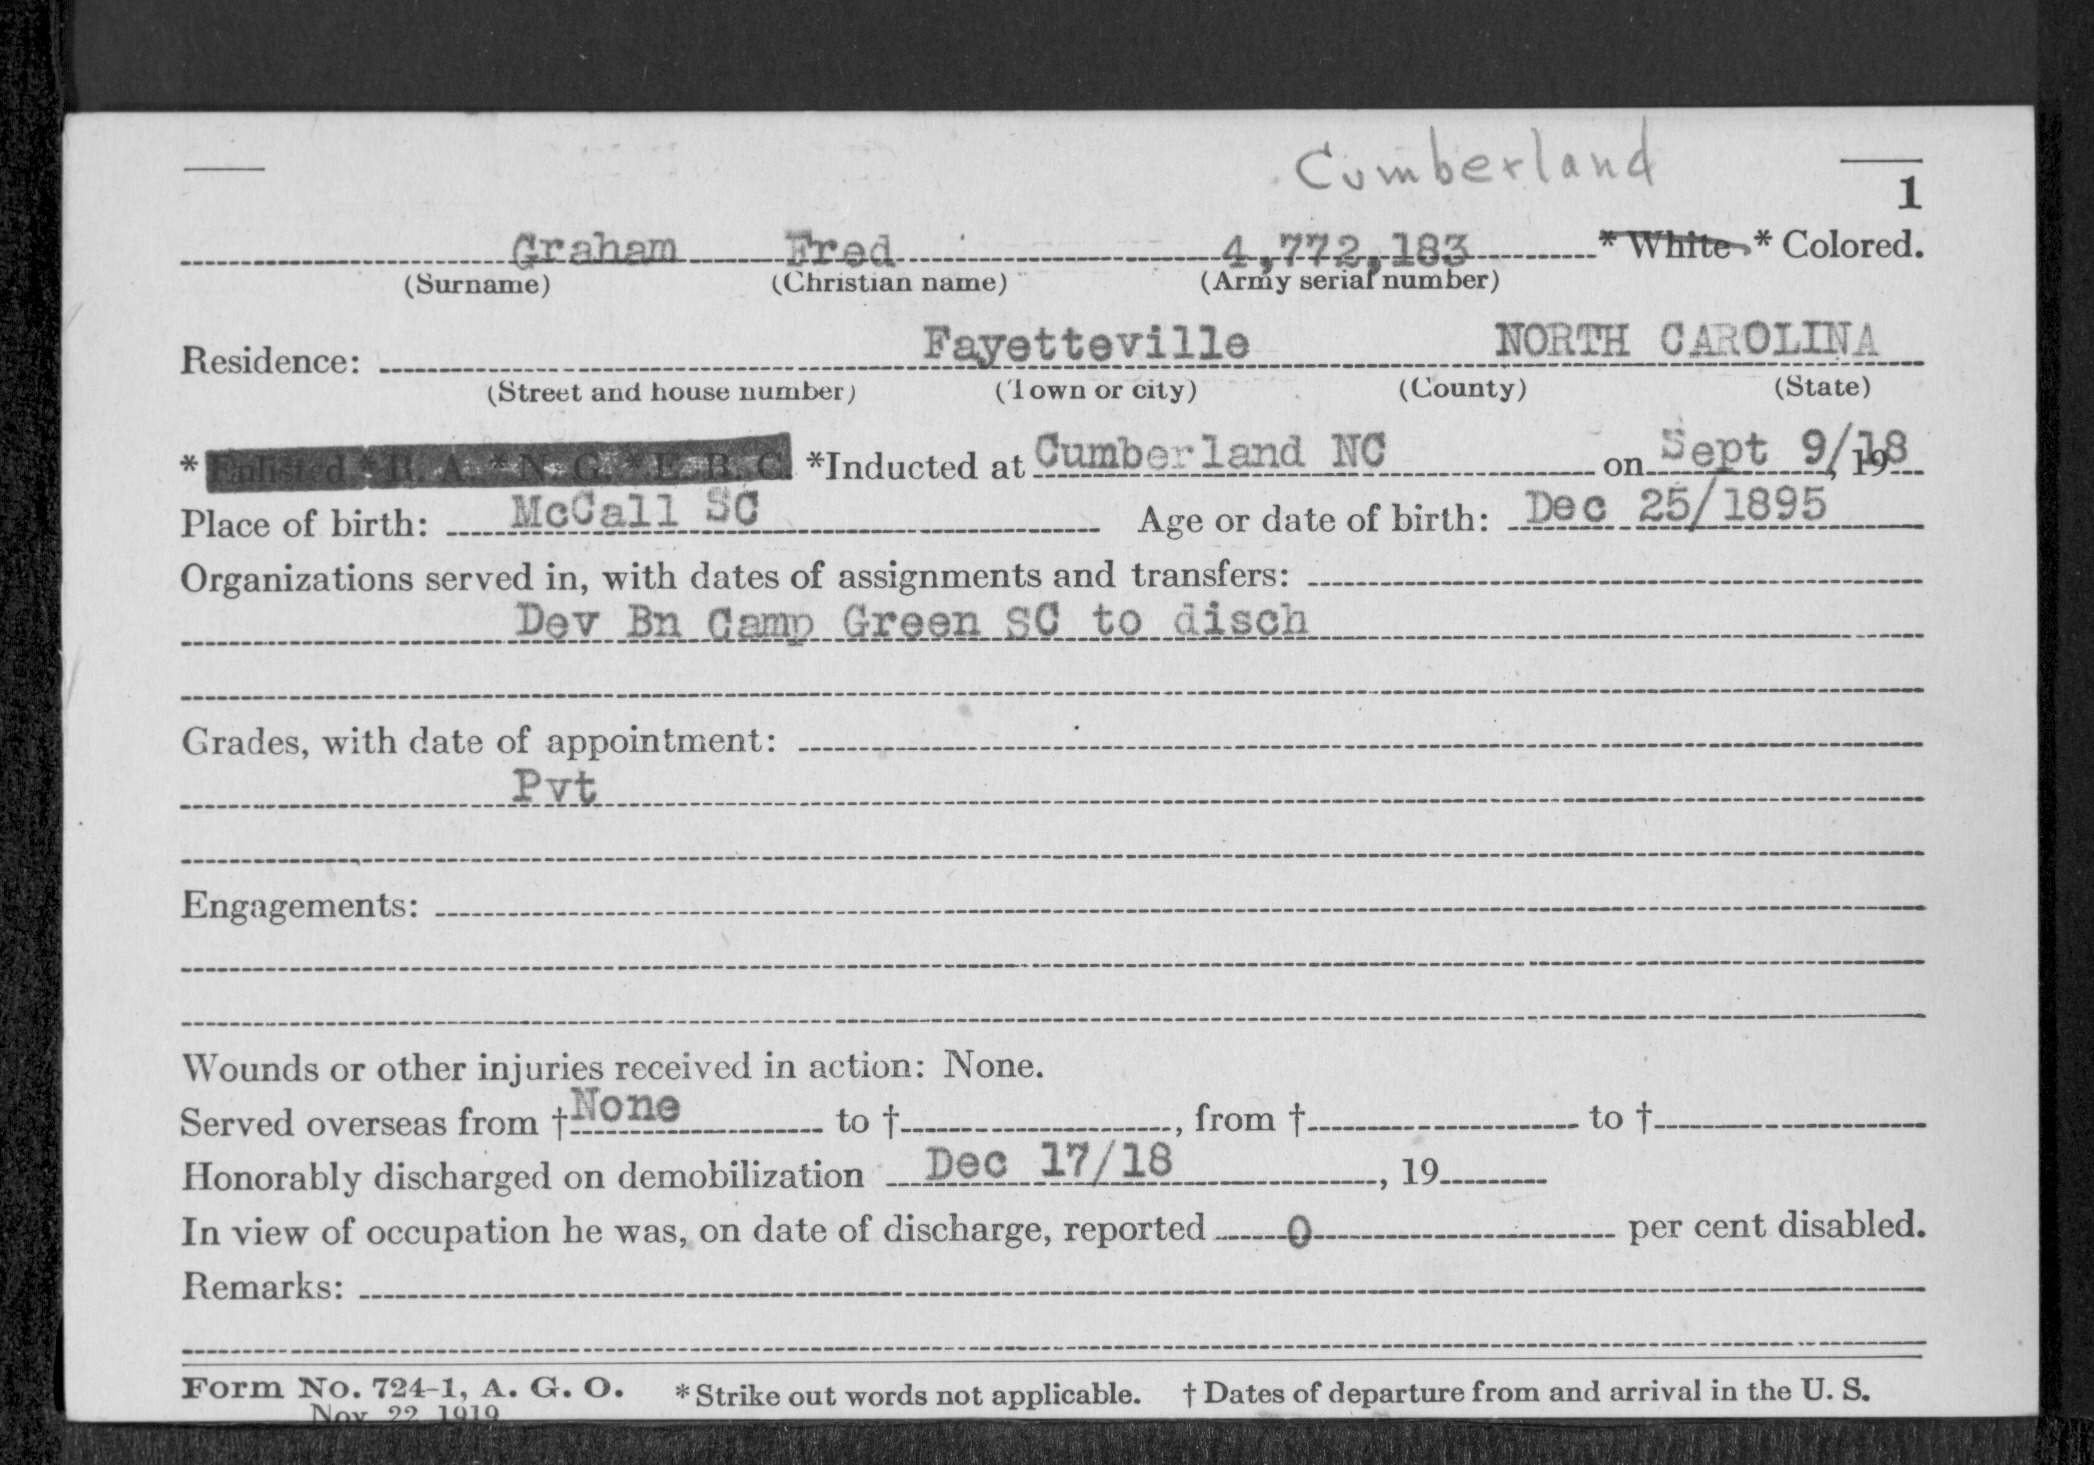 Cumberland
1
Graham Fred 4,772,183 * White * Colored.
(Surname) (Christian name) (Army serial number)
Residence: Fayetteville NORTH CAROLINA
(Street and house number) (Town or city) (County) (State)
* Enlisted * R. A. * N. G. * E. R. C. *Inducted at Cumberland NC on Sept 9/18, 19
Place of birth: McCall SC Age or date of birth: Dec 25/1895
Organizations served in, with dates of assignments and transfers:
Dev Bn Camp Green SC to disch
Grades, with date of appointment:
Pvt
Engagements:
Wounds or other injuries received in action: None.
Served overseas from † None to †, from † to †
Honorably discharged on demobilization Dec 17/18, 19
In view of occupation he was, on date of discharge, reported 0 per cent disabled.
Remarks:
Form No. 724-1, A. G. O. * Strike out words not applicable. † Dates of departure from and arrival in the U. S.
Nov. 22, 1919